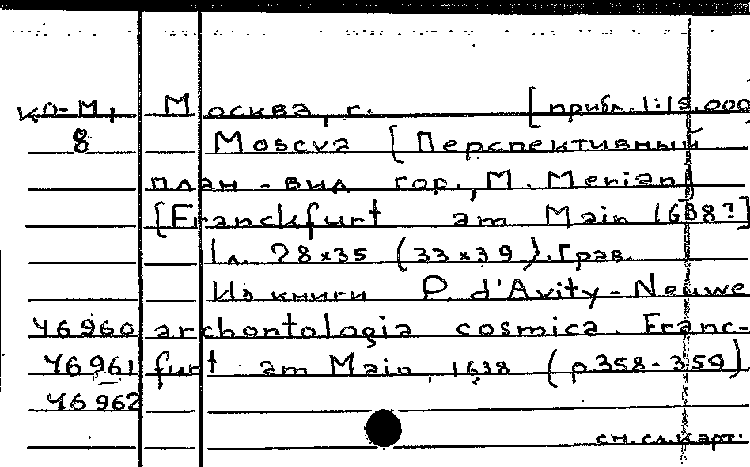 КО-М, Москва, г. [прибл. 1:15.000
8 Moscva [Перспективный
план - вид гор., M. Merian]
[Franckfurt am Main 1638?]
1 л. 28x35 (33x39). Грав.
Из книги P. d'Avity - Neuwe
46960 archontologia cosmica. Franc-
46961 furt am Main, 1638 (p 358-359)
46962
см. сл. карт.